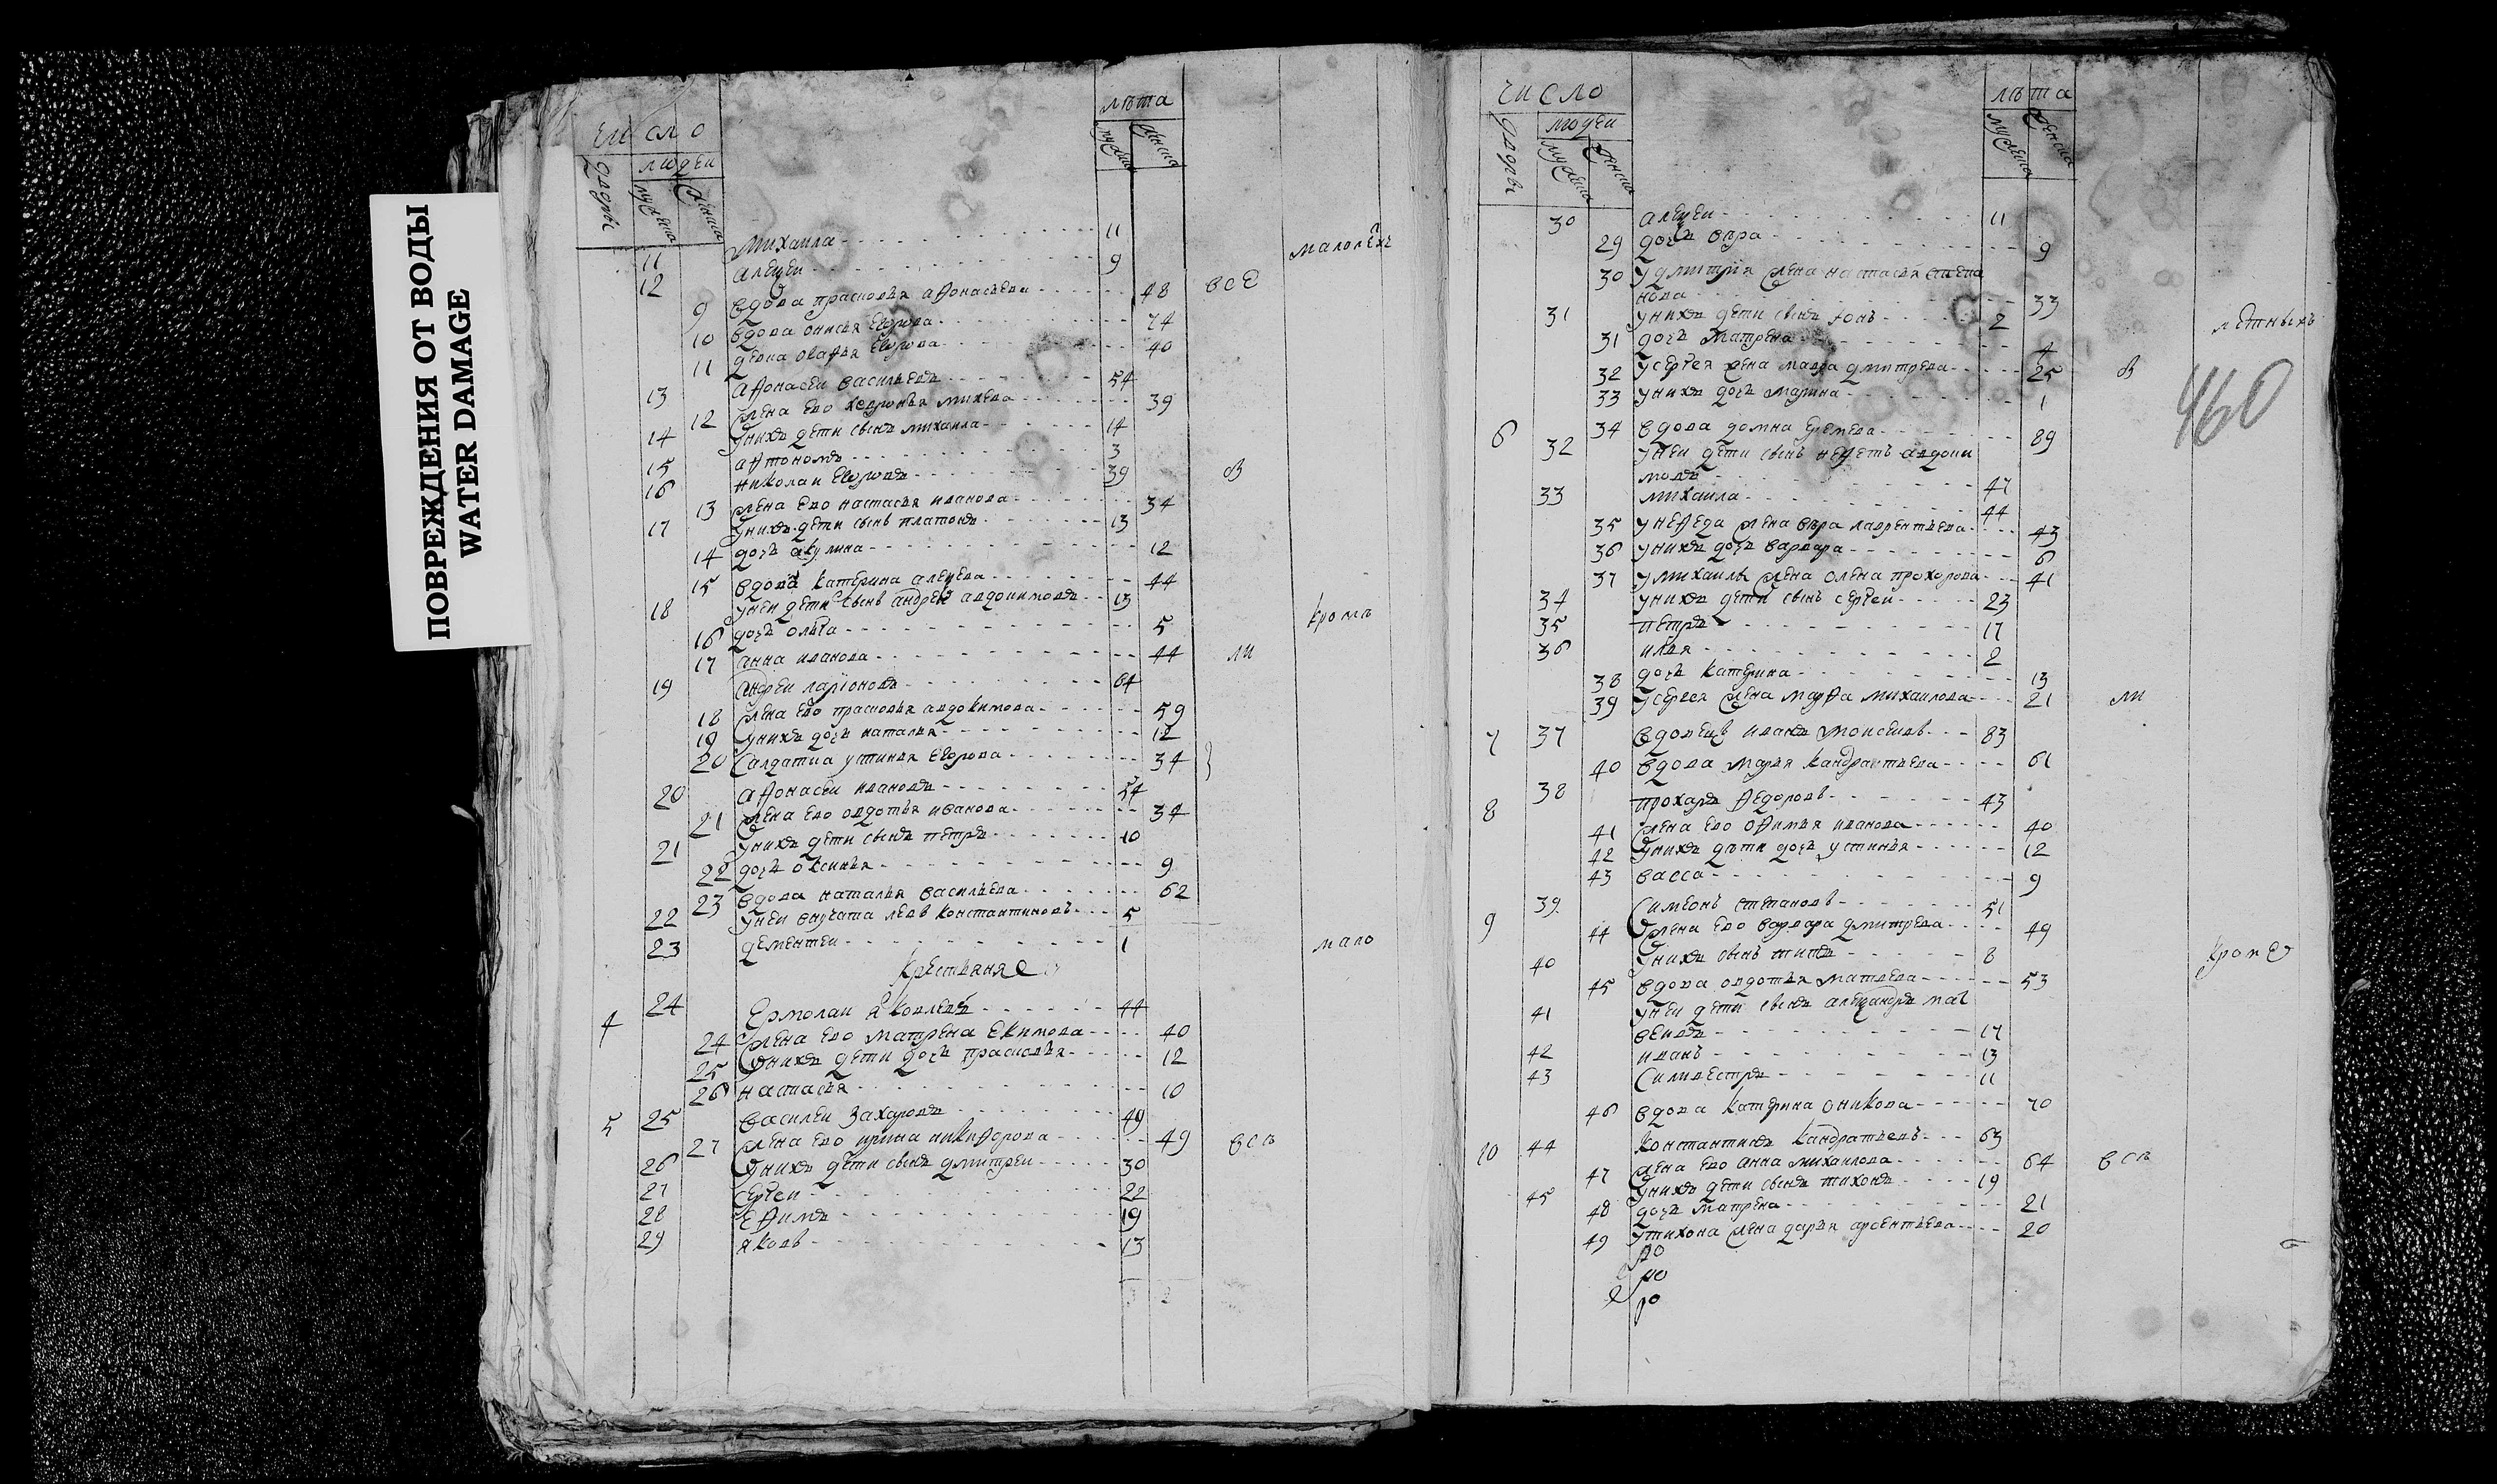 ПОВРЕЖДЕНИЯ ОТ ВОДЫ
WATER DAMAGE
число лѣта
дворы людеи мужеска женска мужеска женска
11 михаила 11
12 алеѯеи 9 малолѣтх
9 вдова прасковья афонасьева 48 все
10 вдова онисья егорова 74
11 девка офья егорова 40
13 афонасеи васильевъ 54
12 жена ево михева 39
14 унихъ дети сынъ михаила 14
15 автономъ 3
16 николаи егоровъ 39 в
13 жена ево настасья иванова 34
17 унихъ дети сынъ платонъ 13
14 дочь акулина 12
15 вдова катерина алеѯева 44
18 унеи дети сынъ андреи авдокимовъ 13
16 дочь ольга 5 кромѣ
17 анна иванова 44 ли
19 андреи ларионовъ 64
18 жена ево прасковья авдокимова 59
19 унихъ дочь наталья 12
20 салдатка устинья егорова 34
20 афонасеи ивановъ 54
21 жена ево овдотья иванова 34
21 унихъ дети сынъ петръ 10
22 дочь оксинья 9
23 вдова наталья васильева 62
22 унеи внучата левъ константиновъ 5
23 дементеи 1 мало
крестьяня
4 24 Ермолаи яковлевъ 44
24 жена ево матрена екимова 40
25 унихъ дети дочь прасковья 12
26 настасья 10
5 25 василеи захаровъ 49
27 жена ево ирина никифорова 49 всѣ
26 унихъ дети сынъ дмитреи 30
27 сергеи 22
28 ефимъ 19
29 яковъ 13
число лѣта
дворы людеи мужеска женска мужеска женска
30 алеѯеи 11
29 дочь вѣра 9
30 удмитрия жена настасья степа
нова 33
31 унихъ дети сынъ 2 лѣтныхъ
31 дочь матрена 4
32 усергея жена мавра дмитрева 25 в
33 унихъ дочь марина 1
460
6 34 вдова домна еремева 89
32 унеи дети сынъ авдоки
мовъ 47
33 михаила 44
35 жена вѣра лаврентьева 43
36 унихъ дочь варвара 6
37 умихаилы жена олена прохорова 41
34 унихъ дети сынъ сергеи 23
35 петръ 17
36 илья 2
38 дочь катерина 13
39 усергея жена марфа михаилова 21 ли
7 37 вдовецъ иванъ моисеивъ 83
40 вдова марья кандратьева 61
8 38 прохаръ федоровъ 43
41 жена ево офимья иванова 40
42 унихъ дѣти дочь устинья 12
43 васса 9
9 39 симеонъ степановъ 51
44 жена ево варвара дмитрева 49
40 унихъ сынъ титъ 8 кроме
45 вдова овдотья матвева 53
41 унеи дети сынъ алеѯандръ мат
веивъ 17
42 иванъ 13
43 силивестръ 11
46 вдова катерина оникова 70
10 44 константинъ кандратьевъ 63
47 жена ево анна михаилова 64 всѣ
45 унихъ дети сынъ тихонъ 19
48 дочь матрена 21
49 утихона жена дарья арсентьева 20